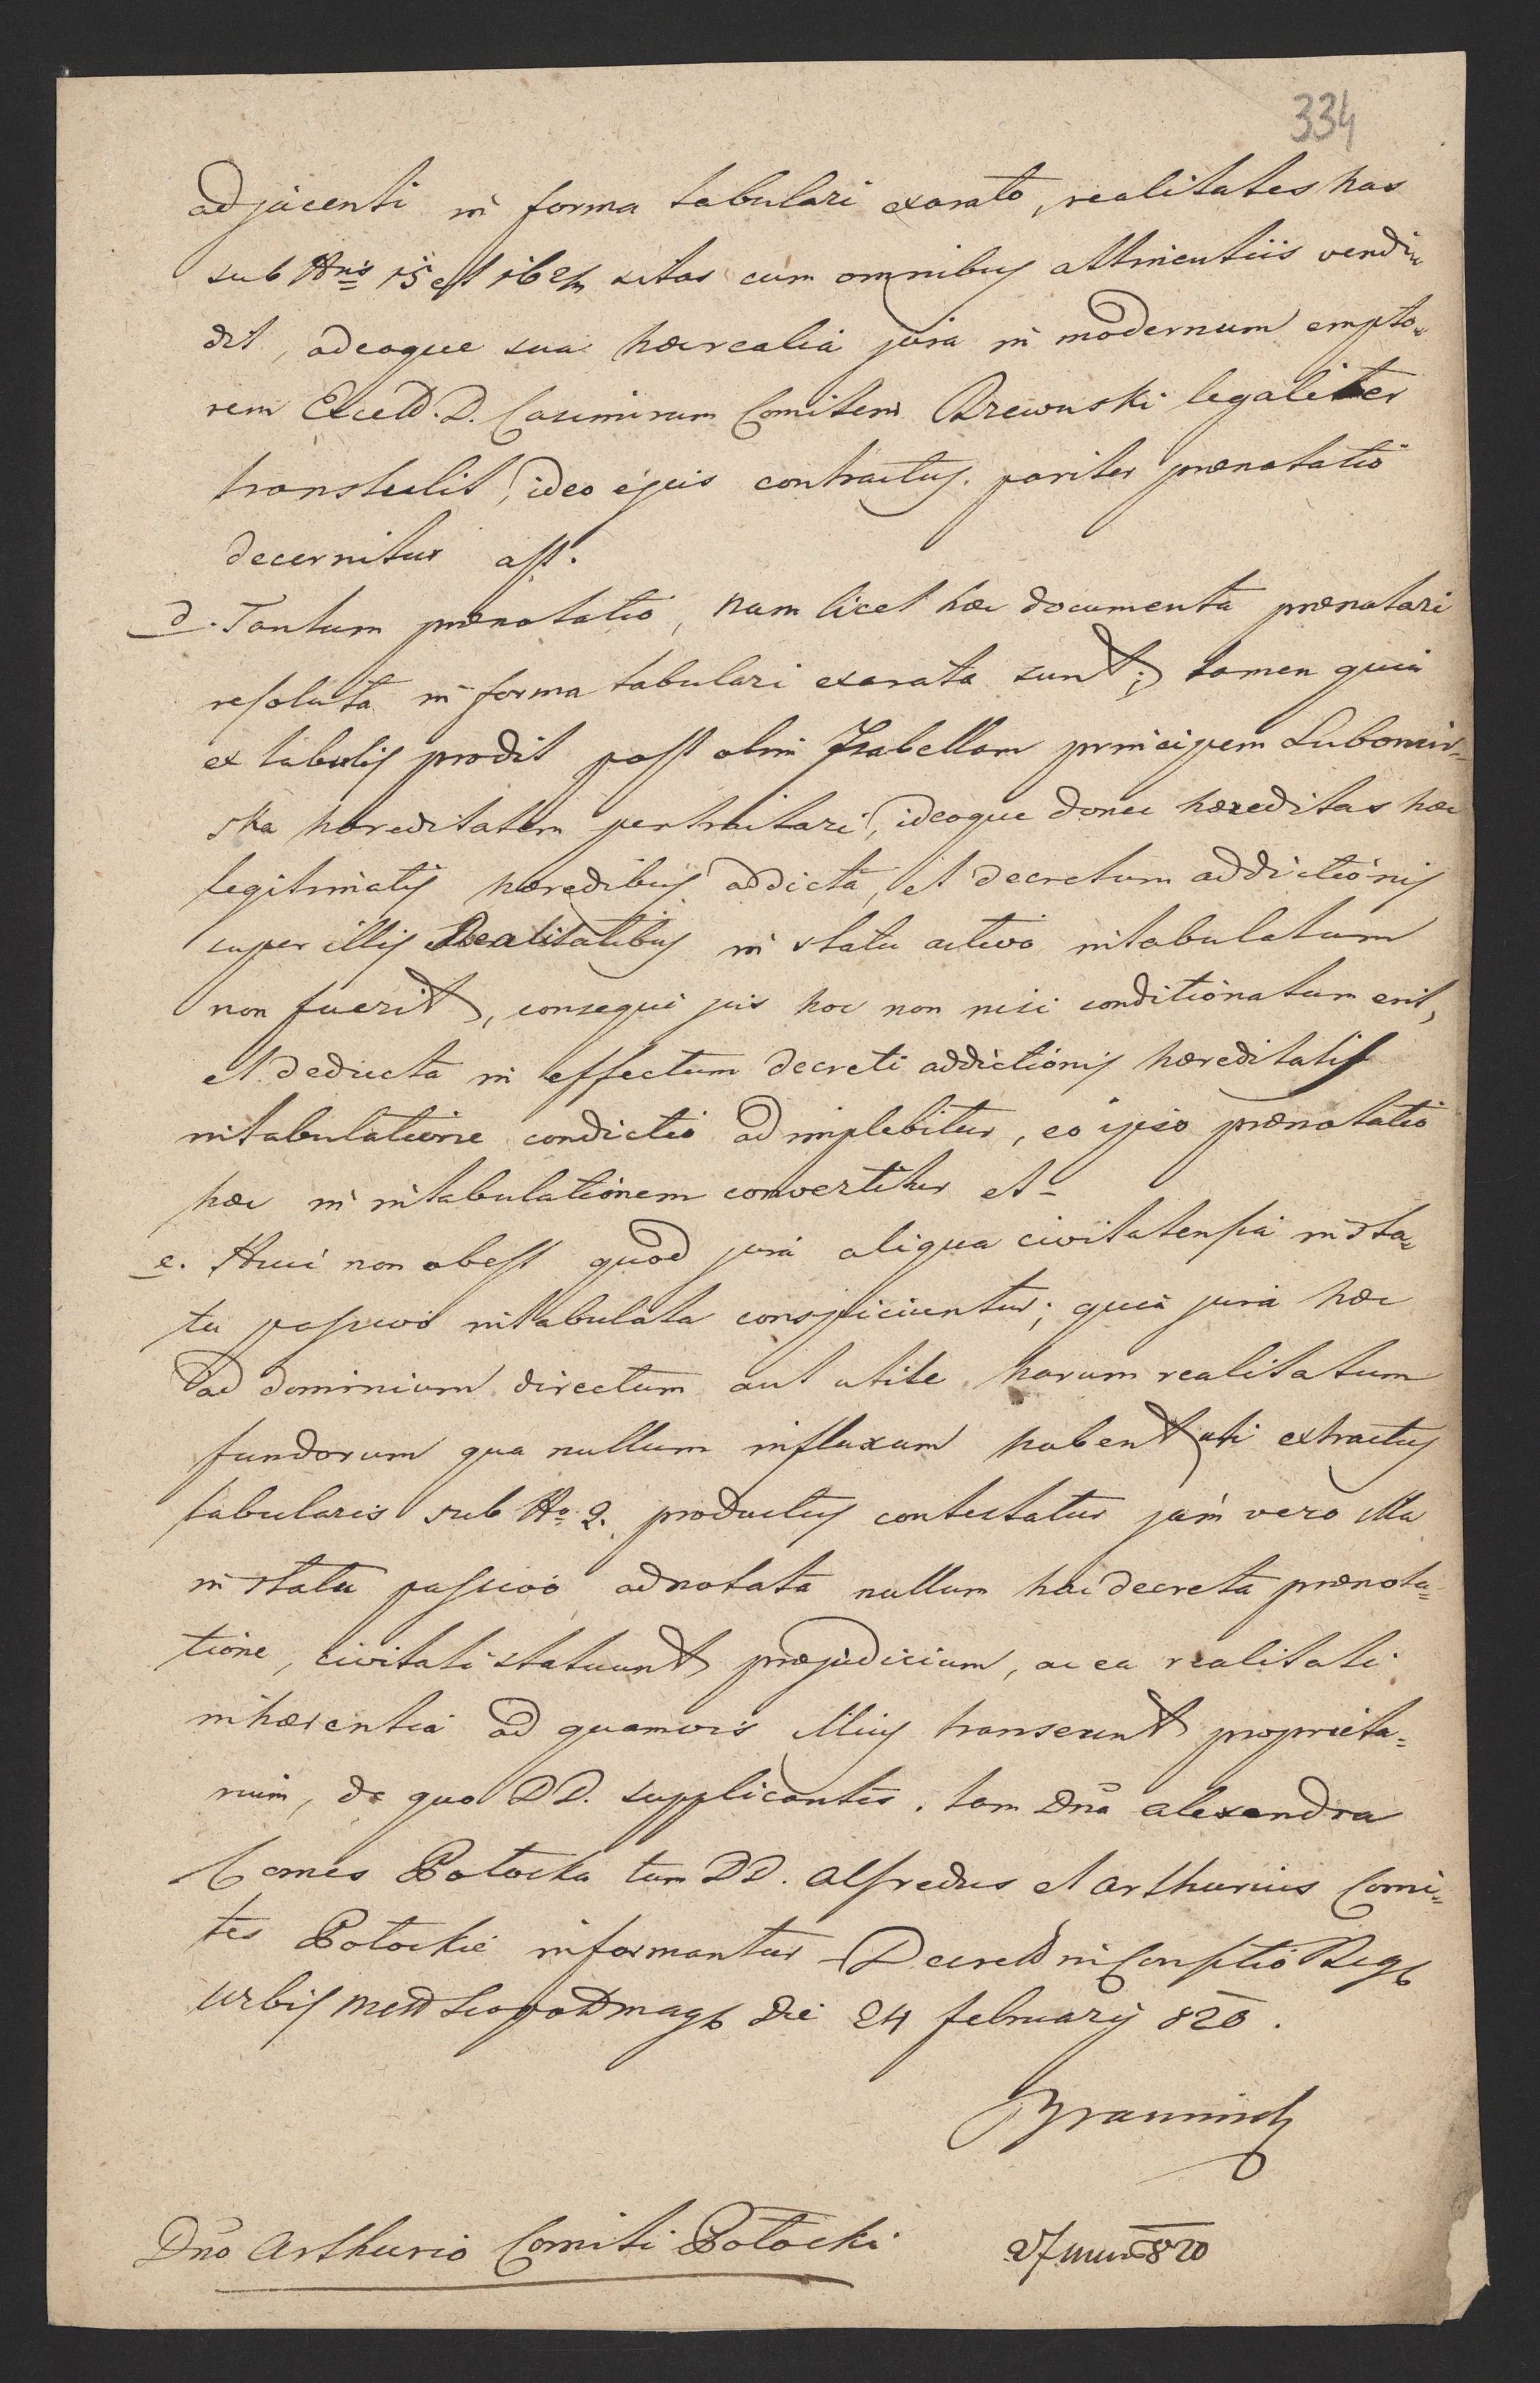 334
adjacenti in forma tabulari exarato, realitates has
sub Nris 15 et 16 2/4 sitas cum omnibus attinentiis vendi=
dit, adeoque sua haerealia jura in modernum empto=
rem Excell. D. Casimirum Comitem Rzewuski legaliter
transtulit, ideo ejus contractus pariter praenotatio
decernitur ast.
d. Tantum praenotatio, nam licet haec documenta praenotari
resoluta in forma tabulari exarata sunt; tamen quia
ex tabulis prodit post olim Isabellam principem Lubomir=
ska haereditatem pertractari, ideoque donec haereditas haec
legitimatis haeredibus addicta, et decretum addictionis
super illis Realitatibus in statu activo intabulatum
non fuerit, consequi jus hoc non nisi conditionatum erit,
et deducta in effectum decreti addictionis haereditatis
intabulatione condictio adimplebitur, eo ipso praenotatio
haec in intabulationem convertitur et-
e. Huic non obest quod jura aliqua civitatensia in sta=
tu passivo intabulata conspiciuntur; quia jura haec
ad dominium directum aut utile harum realitatum
fundorum qua nullum influxum habent uti extractus
tabularis sub No 2. productus contestatur jam vero illa
in statu passivo adnotata nullum hac decreta praenota=
tione, civitati statuunt praejudicium, ac ea realitati
inhaerentia ad quamvis illius transeunt proprieta=
rium, de quo DD. supplicantes. tam Dna Alexandra
Comes Potocka tum DD. Alfredus et Arthurius Comi=
tes Potockie informantur Decret in Consstio Reg
urbis Mett Leopol mag die 24 february 820.
Dno Arthurio Comiti Potocki
27 820